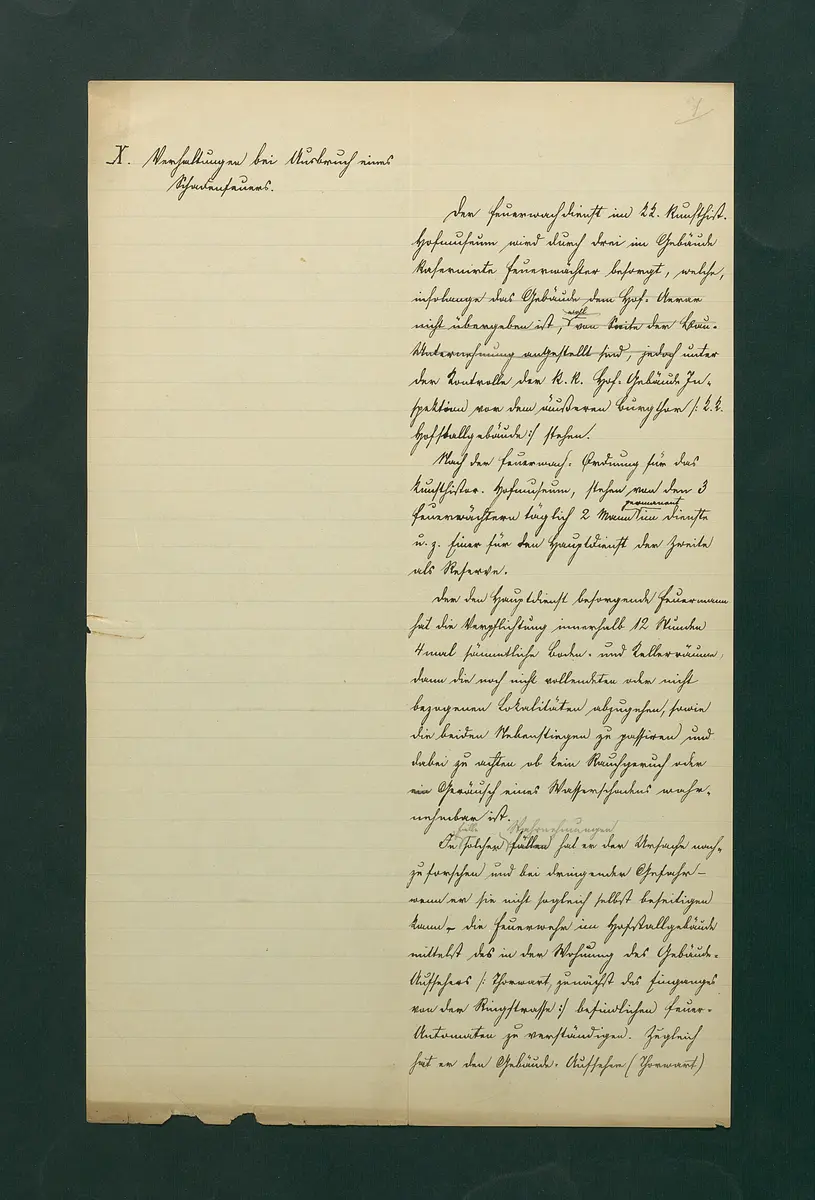 1
X. Verhaltungen bei Ausbruch eines
Schadenfeuers.
Der Feuerwachdienst im k.k. kunsthist.
Hofmuseum wird durch drei im Gebäude
kasernirte Feuerwächter besorgt, welche,
insolange das Gebäude dem Hof-Aerar
wohl
nicht übergeben ist, von Seite der Bau-
Unternehmung angestellt sind, jedoch unter
der Kontrolle der k.k. Hof-Gebäude In-
spektion vor dem äußeren Burgthor /: k.k.
Hofstallgebäude :/ stehen.
Nach der Feuerwach-Ordnung für das
kunsthistor. Hofmuseum, stehen von den 3
permanent
Feuerwächtern täglich 2 Mann im Dienste
u. z. Einer für den Hauptdienst der Zweite
als Reserve.
Der den Hauptdienst besorgende Feuermann
hat die Verpflichtung innerhalb 12 Stunden
4mal sämmtliche Boden- und Kellerräume,
dann die noch nicht vollendeten oder nicht
bezogenen Lokalitäten abzugehen, sowie
die beiden Nebenstiegen zu passiren und
dabei zu achten ob kein Rauchgeruch oder
ein Geräusch eines Wasserschadens wahr-
nehmbar ist.
Falle Wahrnehmungen
In solchen Fällen hat er der Ursache nach-
zuforschen und bei dringender Gefahr –
wenn er sie nicht sogleich selbst beseitigen
kann – die Feuerwehr im Hofstallgebäude
mittelst des in der Wohnung des Gebäude-
Aufsehers /: Thorwart, zunächst des Einganges
von der Ringstrasse :/ befindlichen Feuer-
Automaten zu verständigen. Zugleich
hat er den Gebäude-Aufseher (Thorwart)